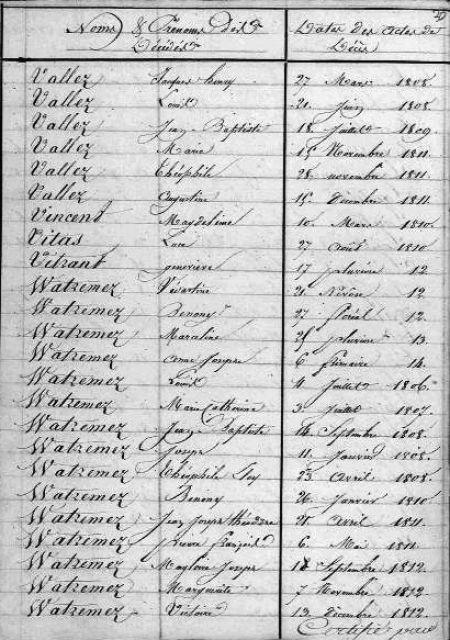 Noms & Prenoms des Décédés Dates des Actes de Décès
Vallez Jacques henry 27 Mars 1808.
Vallez Louis 21. Juin 1808.
Vallez Jean Baptiste 18. Juillet 1809.
Vallez Marie 15 Novembre 1811.
Vallez Théophile 28. novembre 1811.
Vallez Augustine 15. Décembre 1811.
Vincent Magdeleine 10. Mars 1810.
Vitas Luce 27 Août 1810.
Vitrant genevieve 17 pluviôse 12
Watremez Védastine 21. Nivôse 12.
Watremez Benony 27 floréal 12.
Watremez 25 pluviôse 13.
Watremez Come Joseph 6 frimaire 14.
Watremez Louis 4 Juillet 1806.
Watremez Marie Catherine 3 Juillet 1807.
Watremez Jean Baptiste 14. Septembre 1808.
Watremez Joseph 11. Janvier 1808.
Watremez Théophile 23 Avril 1808.
Watremez Benony 26 Janvier 1810.
Watremez Jean Joseph théodore 21 Avril 1811.
Watremez pierre françois 6. Mai 1811.
Watremez Magloire Joseph Septembre 1812.
Watremez Marguerite 7 Novembre 1812
Watremez Victoire 13 Décembre 1812.
Certifié